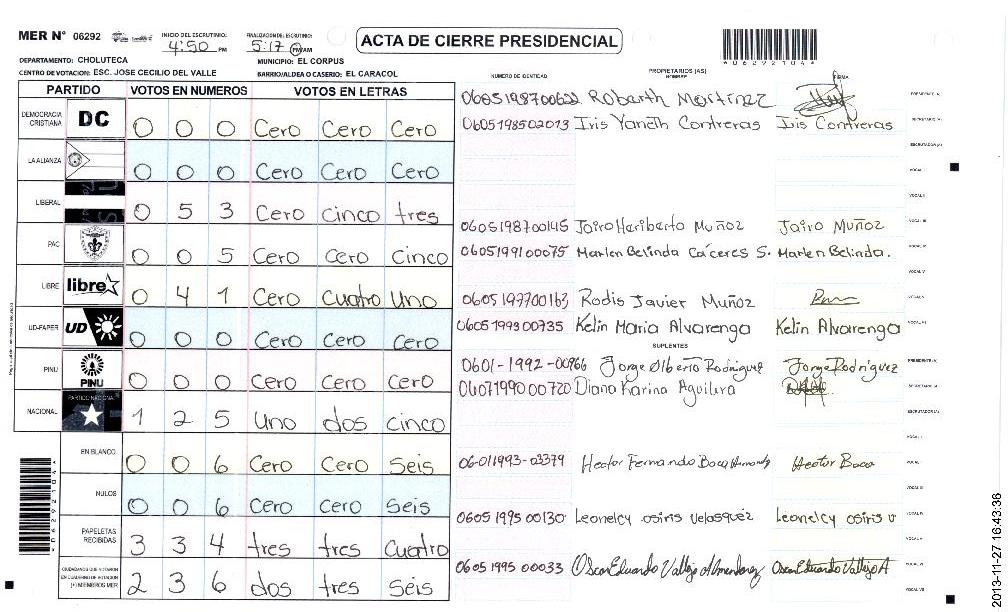 MER N° 06292
INICIO DEL ESCRUTINIO: 4:50 PM
FINALIZACION DEL ESCRUTINIO: 5:17 PM/AM
ACTA DE CIERRE PRESIDENCIAL
DEPARTAMENTO: CHOLUTECA
MUNICIPIO: EL CORPUS
CENTRO DE VOTACION: ESC. JOSE CECILIO DEL VALLE
BARRIO/ALDEA O CASERIO: EL CARACOL
*06292104*
PARTIDO VOTOS EN NUMEROS VOTOS EN LETRAS
DEMOCRACIA CRISTIANA DC 0 0 0 Cero Cero Cero
LA ALIANZA 0 0 0 Cero Cero Cero
LIBERAL 0 5 3 Cero cinco tres
PAC 0 0 5 Cero Cero Cinco
LIBRE libre 0 4 1 Cero Cuatro Uno
UD-FAPER UD 0 0 0 Cero Cero Cero
PINU PINU 0 0 0 Cero Cero Cero
NACIONAL PARTIDO NACIONAL 1 2 5 Uno dos cinco
EN BLANCO 0 0 6 Cero Cero Seis
NULOS 0 0 6 Cero Cero Seis
PAPELETAS RECIBIDAS 3 3 4 tres tres Cuatro
CIUDADANOS QUE VOTARON EN CUADERNO DE VOTACION (+) MIEMBROS MER 2 3 6 dos tres Seis
NUMERO DE IDENTIDAD PROPIETARIOS (AS) NOMBRE FIRMA
0605198700622 Roberth Martinez PRESIDENTE (A)
0605198502013 Iris Yaneth Contreras Iris Contreras SECRETARIO (A)
ESCRUTADOR (A)
VOCAL I
VOCAL II
0605198700145 Jairo Heriberto Muñoz Jairo Muñoz VOCAL III
0605199100075 Marlen Belinda Cáceres S. Marlen Belinda. VOCAL IV
VOCAL V
0605197700163 Rodis Javier Muñoz VOCAL VI
0605199300735 Kelin Maria Alvarenga Kelin Alvarenga VOCAL VII
SUPLENTES
0601-1992-00966 Jorge Alberto Rodriguez Jorge Rodriguez PRESIDENTE (A)
0607199000720 Diana Karina Aguilera SECRETARIO (A)
ESCRUTADOR (A)
VOCAL I
06-011993-03379 Hector Fernando Baca Hector Baca VOCAL II
VOCAL III
0605199500130 Leonelcy osiris Velasquez Leonelcy osiris v VOCAL IV
VOCAL V
0605199500033 Oscar Eduardo Vallejo Almendarez Oscar Eduardo Vallejo A VOCAL VI
VOCAL VII
2013-11-27 16:43:36